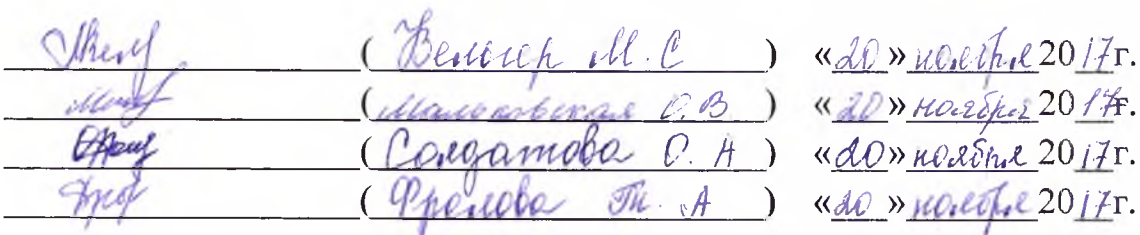 ( М. С ) «20» ноября 2017г.
(Мальковская О.В ) «20» ноября 2017г.
(Солдатова О. А ) «20» ноября 2017г.
(Фролова Т. А ) «20» ноября 2017г.